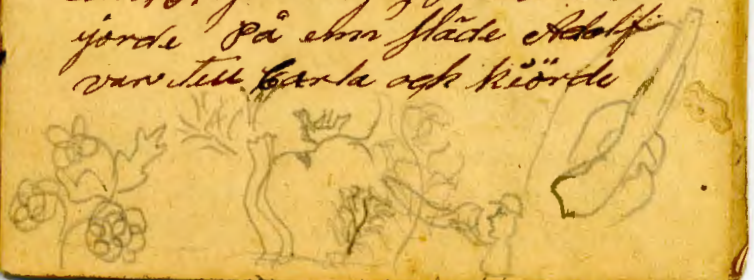 jorde på enn släde Adolf
var Till Carla ock kiörde